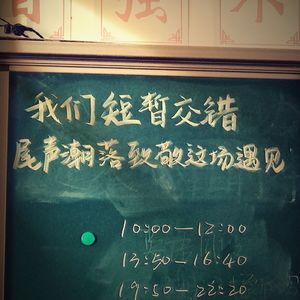 自强不
我们短暂交错
尾声潮落致敬这场遇见
10:00—12:00
13:50—16:40
19:50—22:20